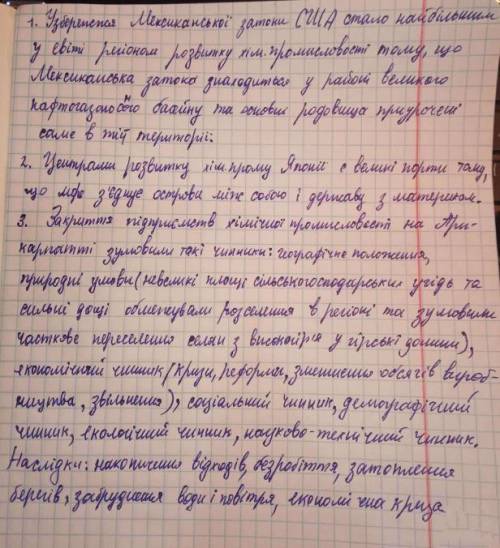 1. Узбережжя Мексиканської затоки США стало найбільшим
у світі регіоном розвитку хім. промисловості тому, що
Мексиканська затока знаходиться у районі великого
нафтогазоносного басейну та основні родовища приурочені
саме в тій території.
2. Центрами розвитку хім. прому Японії є великі порти тому,
що море з'єднує острови між собою і державу з материком.
3. Закриття підприємств хімічної промисловості на При-
карпатті зумовили такі чинники: географічне положення,
природні умови (невеликі площі сільськогосподарських угідь та
сильні дощі обмежували розселення в регіоні та зумовили
часткове переселення селян з високогір'я у гірські долини),
економічний чинник (кризи, реформи, зменшення обсягів вироб-
ництва, звільнення), соціальний чинник, демографічний
чинник, екологічний чинник, науково-технічний чинник.
Наслідки: накопичення відходів, безробіття, затоплення
берегів, забруднення води і повітря, економічна криза